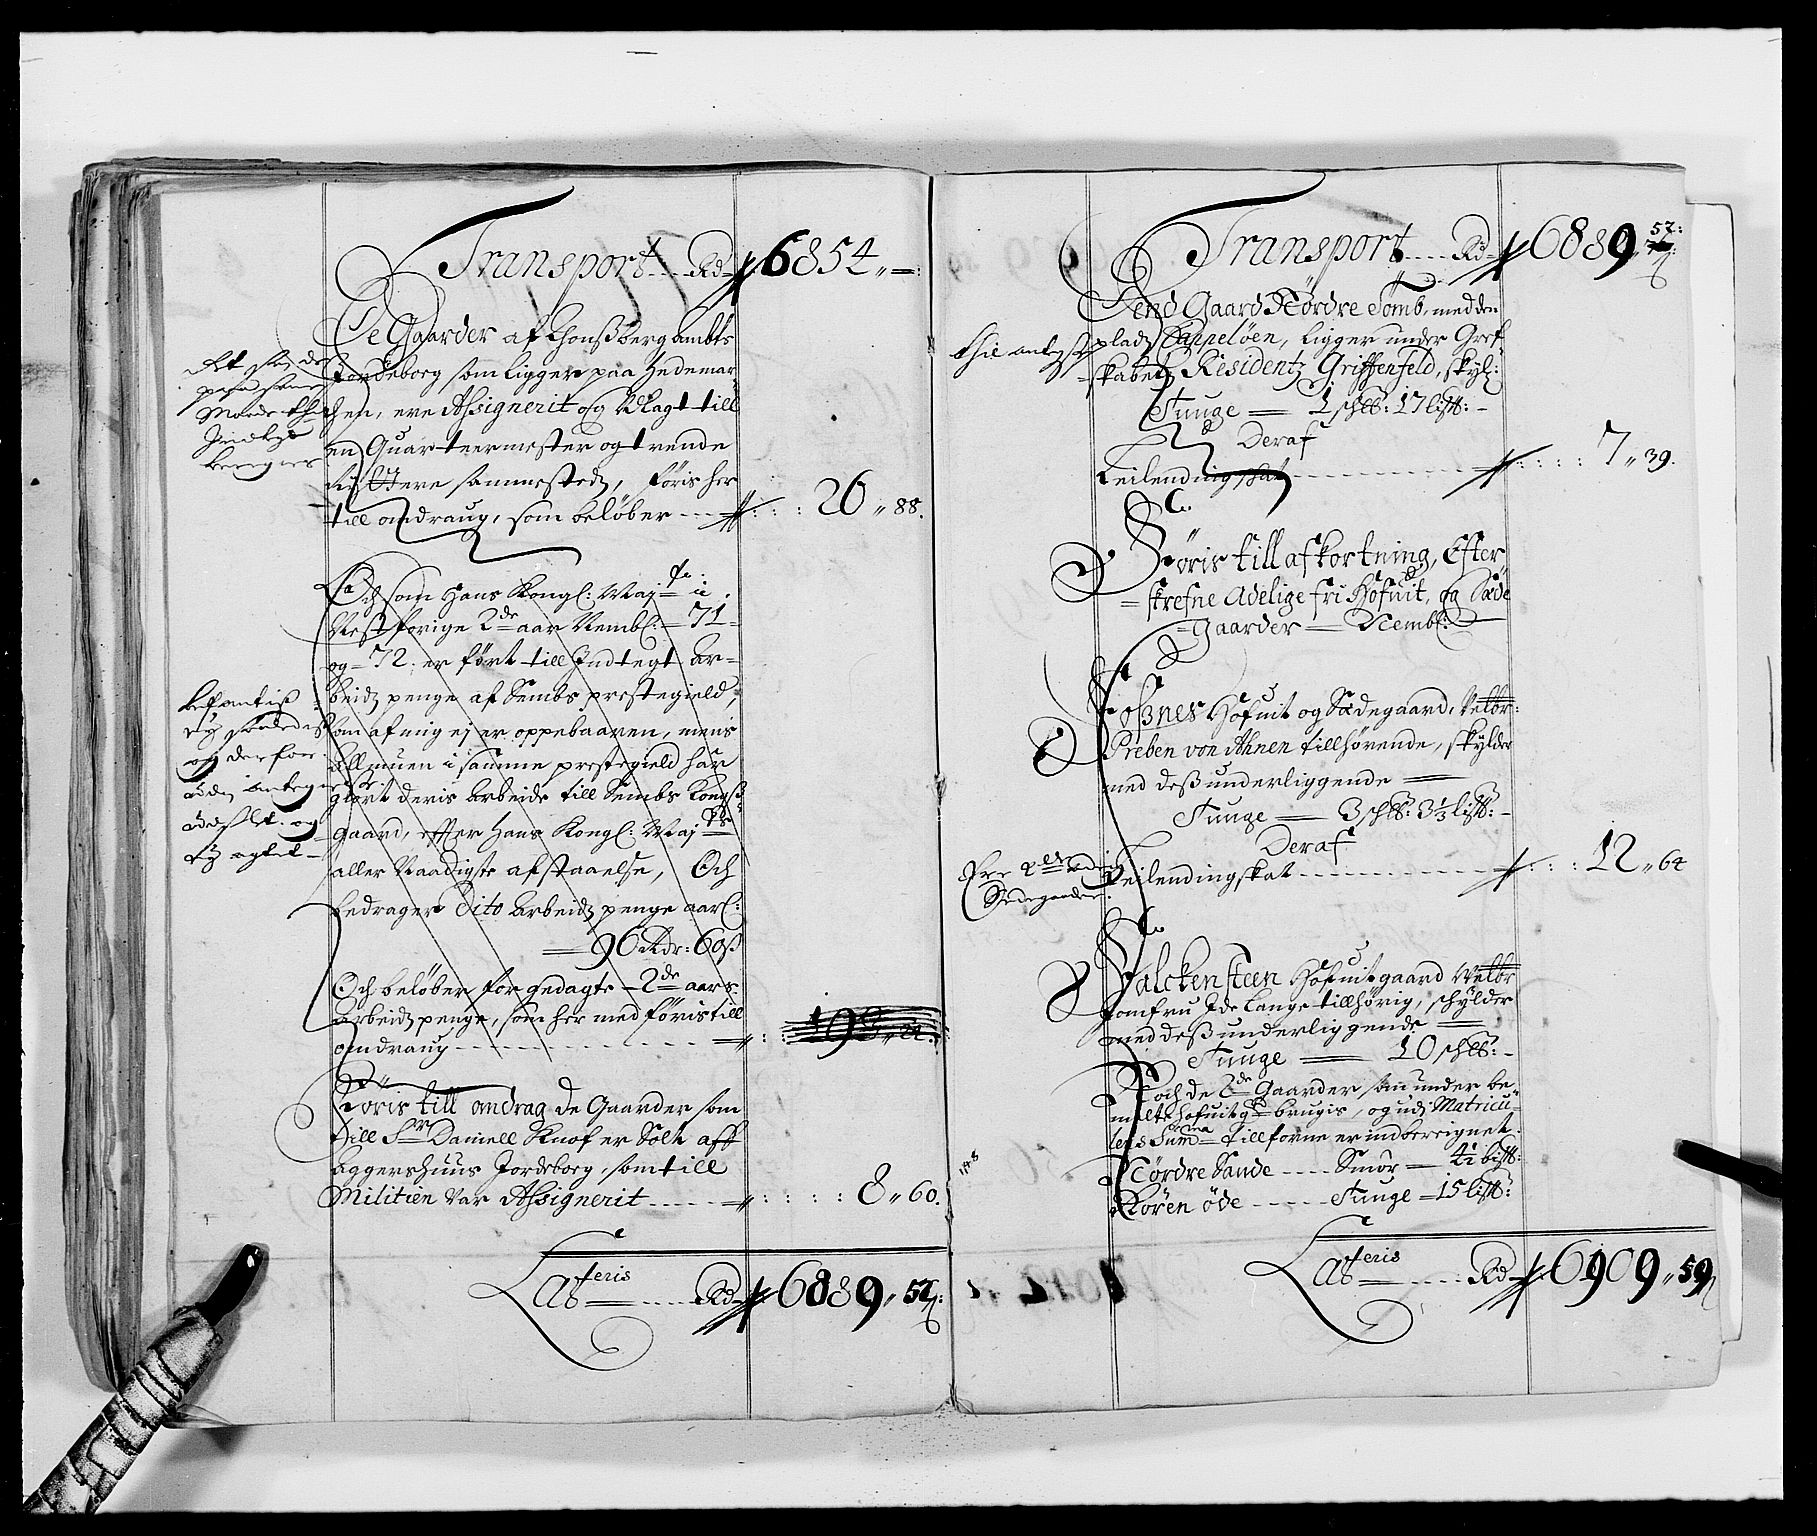 Transport .... Rd 6854 „ — :
De Gaarder af Thonßberg ambts
Jordeborg som ligger paa Hedemar-
chen, ere Assignerit og Udlagt till
en Quarteermester og trende
Ryttere sammesteds, føris her
till ondraug, som beløber --- 26 „ 88.
Och som Hans Kongl: Maj:te i
Nest forige 2de aar Nembl: 71
og 72. er ført till Indtegt Ar-
beids penge af Sembs prestegield,
som af mig ej er oppebaaren, mens
Allmuen i samme prestegield har
giort deris Arbeide till Sembs Kongß
gaard, effter Hans Kongl: Maj:ts
aller Naadigste afstaaelse, Och
bedrager Dito Arbeids penge aarl:
96 Rdr: 60 ß
Och beløber for gedagte 2de aars
Arbeids penge, som her med føris till
ondraug
Føris till ondrag de Gaarder som
till Sr Daniell Knof er Solt aff
Aggershuus Jordeborg, som till
Militien var Assignerit ---- 8 „ 60.
Lateris ---- Rd 6889 „ 52
Transport .... Rd 6889 52:
End Gaard Nordre Somb, med den
plads Cappeløen, ligger under Gref-
skabets Residentz Griffenfeld, skyl:
Tunge — 1 sch℔: 17 lis℔: -
Deraf
Leilendingskat ---- 7 „ 39.
Føris till afkortning, Efter-
skrefne Adelige fri Hofuit, og Sæde
Gaarder — Nembl:
Foßnes Hofuit og Sædegaard, Velbr:
Preben von Ahnen tillhørende, skylder
med deß underliggende —
Tunge — 3 sch℔: 3½ lis℔: -
Deraf
Leilendingskat ---- 12 „ 64
Falckensteen Hofuitgaard Velbr
Jomfru Ide Lange tillhørig, schylder
med deß underliggende —
Tunge — 10 sch℔: -
Noch de 2de Gaarder som under be-
melte hofuitgd brugis, og udi Matricu-
lens Summa tillforne er indbereignet.
Nordre Sande ---- Smør — 4½ bis℔:
Røren øde ---- Tunge — 15 lis℔:
Lateris ---- Rd 6909 „ 59